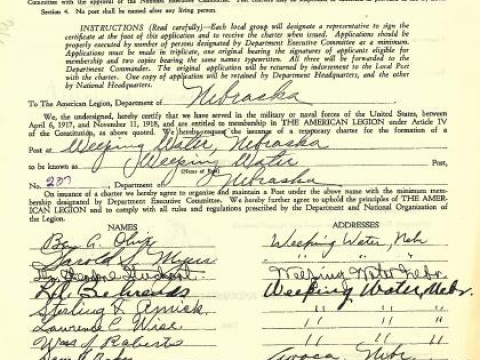 Committee with the approval of the National Executive Committee.
Section 4. No post shall be named after any living person.
INSTRUCTIONS (Read carefully)—Each local group will designate a representative to sign the
certificate at the foot of this application and to receive the charter when issued. Applications should be
properly executed by number of persons designated by Department Executive Committee as a minimum.
Applications must be made in triplicate, one original bearing the signatures of applicants eligible for
membership and two copies bearing the same names typewritten. All three will be forwarded to the
Department Commander. The original application will be returned by indorsement to the Local Post
with the charter. One copy of application will be retained by Department Headquarters, and the other
by National Headquarters.
To The American Legion, Department of Nebraska
We, the undersigned, hereby certify that we have served in the military or naval forces of the United States, between
April 6, 1917, and November 11, 1918, and are entitled to membership in THE AMERICAN LEGION under Article IV
of the Constitution, as above quoted. We hereby request the issuance of a temporary charter for the formation of a
Post at Weeping Water, Nebraska
to be known as Weeping Water Post,
(Name of Post)
No. 237, Department of Nebraska
On issuance of a charter we hereby agree to organize and maintain a Post under the above name with the minimum mem-
bership designated by Department Executive Committee. We further hereby agree to uphold the principles of THE AMER-
ICAN LEGION and to comply with all rules and regulations prescribed by the Department and National Organization of
the Legion.
NAMES ADDRESSES
Weeping Water, Neb
Harold S. " "
Weeping Water Nebr.
Behrends Weeping Water, Nebr.
Sterling Amick " "
Lawrence C. Wise " "
Wm. J. Roberts " "
Avoca Nebr.